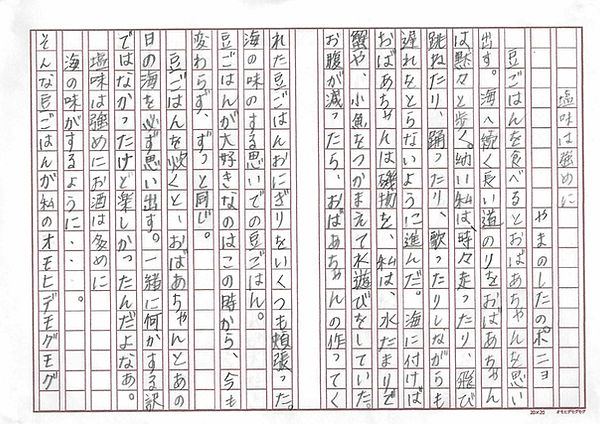 塩味は強めに
やまのしたのポニョ
豆ごはんを食べるとおばあちゃんを思い
出す。海へ続く長い道のりをおばあちゃん
は黙々と歩く。幼い私は、時々走ったり、飛び
跳ねたり、踊ったり、歌ったりしながらも
遅れをとらないように進んだ。海に付けば
おばあちゃんは磯物を、私は、水だまりで
蟹や、小魚をつかまえて水遊びをしていた。
お腹が減ったら、おばあちゃんの作ってく
れた豆ごはんおにぎりをいくつも頬張った。
海の味のする思いでの豆ごはん。
豆ごはんが大好きなのはこの時から、今も
変わらず、ずっと同じ。
豆ごはんを炊くと、おばあちゃんとあの
日の海を必ず思い出す。一緒に何かする訳
ではなかったけど楽しかったんだよなぁ。
塩味は強めにお酒は多めに
海の味がするように・・・。
そんな豆ごはんが私のオモヒデモグモグ
20×20